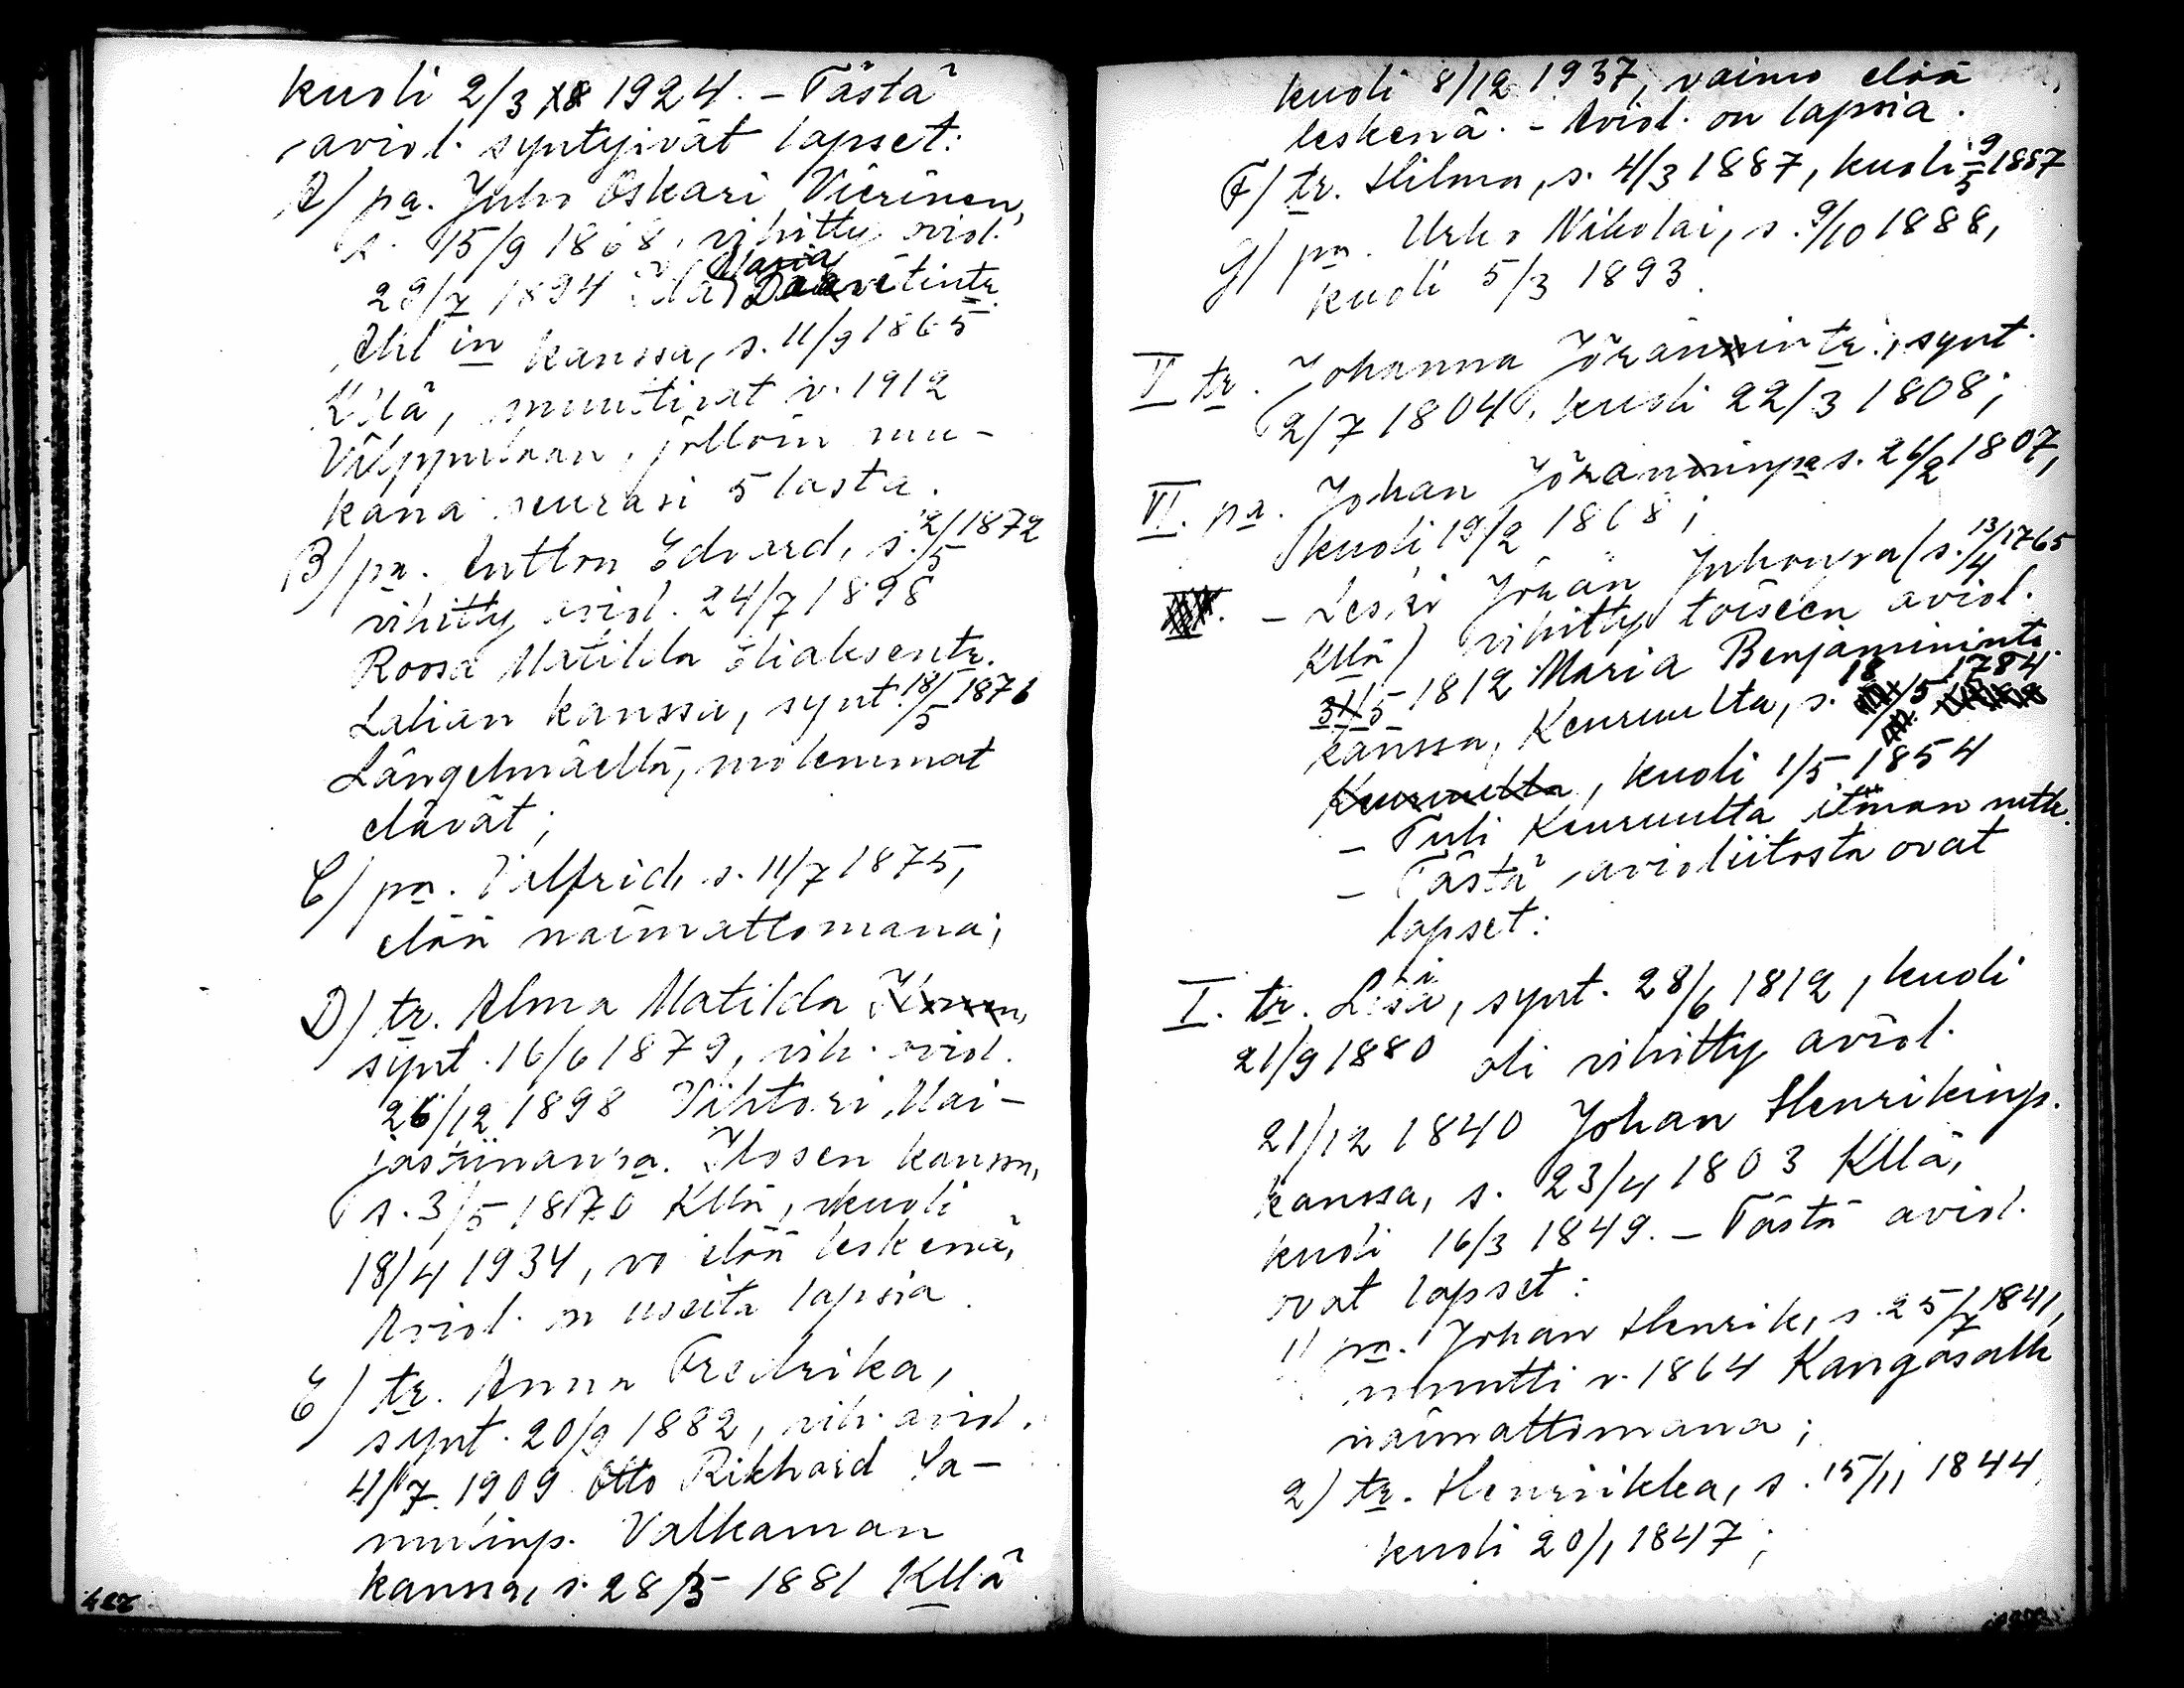 kuoli 2/3 1924. – Tästä
aviol. syntyivät lapset:
A) pa. Juho Oskari Vierinen,
s. 15/9 1868, vihitty aviol.
29/7 1894 Maria Daavetintr.
kanssa, s. 11/9 1865
Kllä, muuttivat v. 1912
Vilppulaan, jolloin mu-
kana seurasi 5 lasta.
B) pa. Anthon Edvard, s. 2/5 1872
vihitty aviol. 24/7 1898
Roosa Matilda Eliaksentr.
Lalian kanssa, synt. 18/5 1876
Längelmäellä, molemmat
elävät;
C) pa. Valfrid, s. 11/7 1875,
elää naimattomana;
D) tr. Alma Matilda
synt. 16/6 1879, vih. aviol.
26/12 1898 Vihtori Mai-
Ilosen kanssa,
s. 3/5 1870 Kllä, kuoli
18/4 1934, vo elää leskenä,
Aviol. on useita lapsia.
E) tr. Anna Fredrika,
synt. 20/9 1882, vih. aviol.
4/7 1909 Otto Rikhard Sa-
muinp. Valkaman
kanssa, s. 28/5 1881 Kllä
kuoli 8/12 1937, vaimo elää
leskenä. – Aviol. on lapsia.
F) tr. Hilma, s. 4/3 1887, kuoli 9/5 1887
G) pa. Urho Nikolai, s. 9/10 1888,
kuoli 5/3 1893.
V tr. Johanna Jöranintr., synt.
2/7 1804, kuoli 22/3 1808;
VI. pa. Johan Jöraninpa s. 26/2 1807,
kuoli 19/2 1868;
– Leski Jöran Juhonpa (s. 13/4 1765
Kllä) vihitty toiseen aviol.
31/5 1812 Maria Benjaminintr.
kanssa, Keuruulta, s. 18/5 1784
Keuruulta, kuoli 1/5 1854
– Tuli Keuruulta ilman mtk.
– Tästä avioliitosta ovat
lapset:
I. tr. Liisa, synt. 28/6 1812, kuoli
21/9 1880 oli vihitty aviol.
21/12 1840 Johan Henrikinp.
kanssa, s. 23/4 1803 Kllä,
kuoli 16/3 1849. – Tästä aviol.
ovat lapset:
1) pa. Johan Henrik, s. 25/7 1841,
muutti v. 1864 Kangasalle
naimattomana;
2) tr. Henrikka, s. 15/11 1844,
kuoli 20/1 1847;